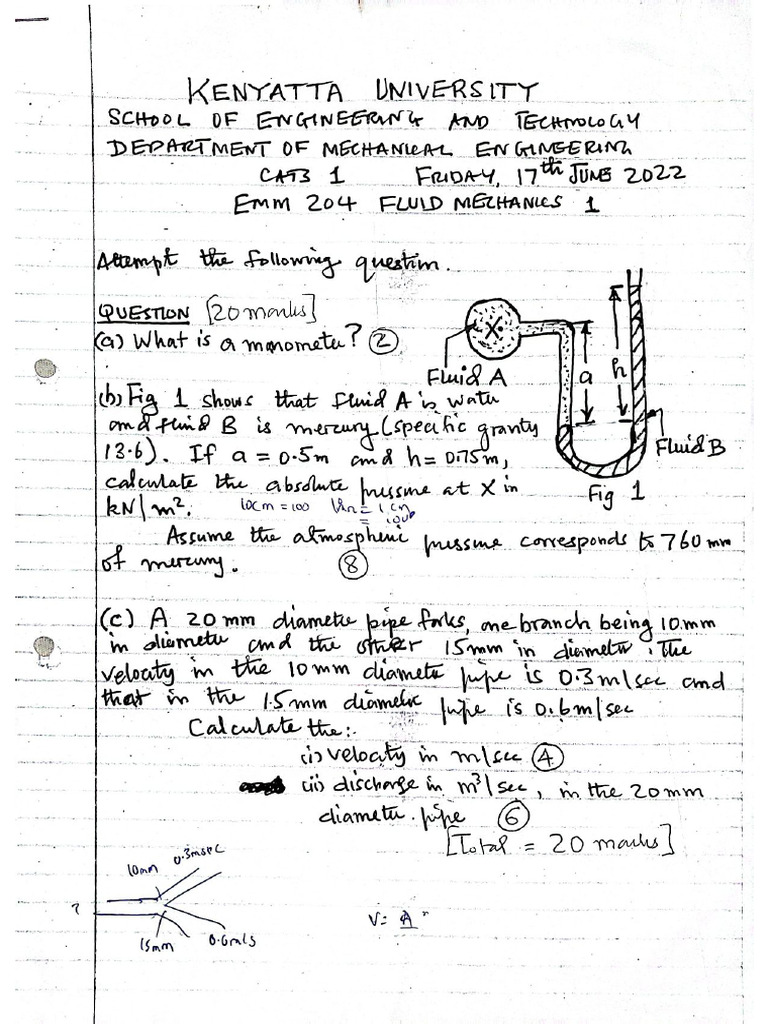 KENYATTA UNIVERSITY
SCHOOL OF ENGINEERING AND TECHNOLOGY
DEPARTMENT OF MECHANICAL ENGINEERING
CATS 1 FRIDAY, 17th JUNE 2022
EMM 204 FLUID MECHANICS 1
Attempt the following question.
QUESTION [20 marks]
(a) What is a manometer? (2)
X
Fluid A
a
h
Fluid B
Fig 1
(b) Fig 1 shows that fluid A is water
and fluid B is mercury (specific gravity
13.6). If a = 0.5m and h = 0.75m,
calculate the absolute pressure at X in
kN/m².
10cm = 100
Assume the atmospheric pressure corresponds to 760 mm
of mercury. (8)
(c) A 20 mm diameter pipe forks, one branch being 10 mm
in diameter and the other 15mm in diameter. The
velocity in the 10mm diameter pipe is 0.3 m/sec and
that in the 1.5mm diameter pipe is 0.6m/sec
Calculate the:
(i) velocity in m/sec (4)
(ii) discharge in m³/sec, in the 20 mm
diameter pipe (6)
[Total = 20 marks]
10mm
?
15mm
0.6m/s
V = A